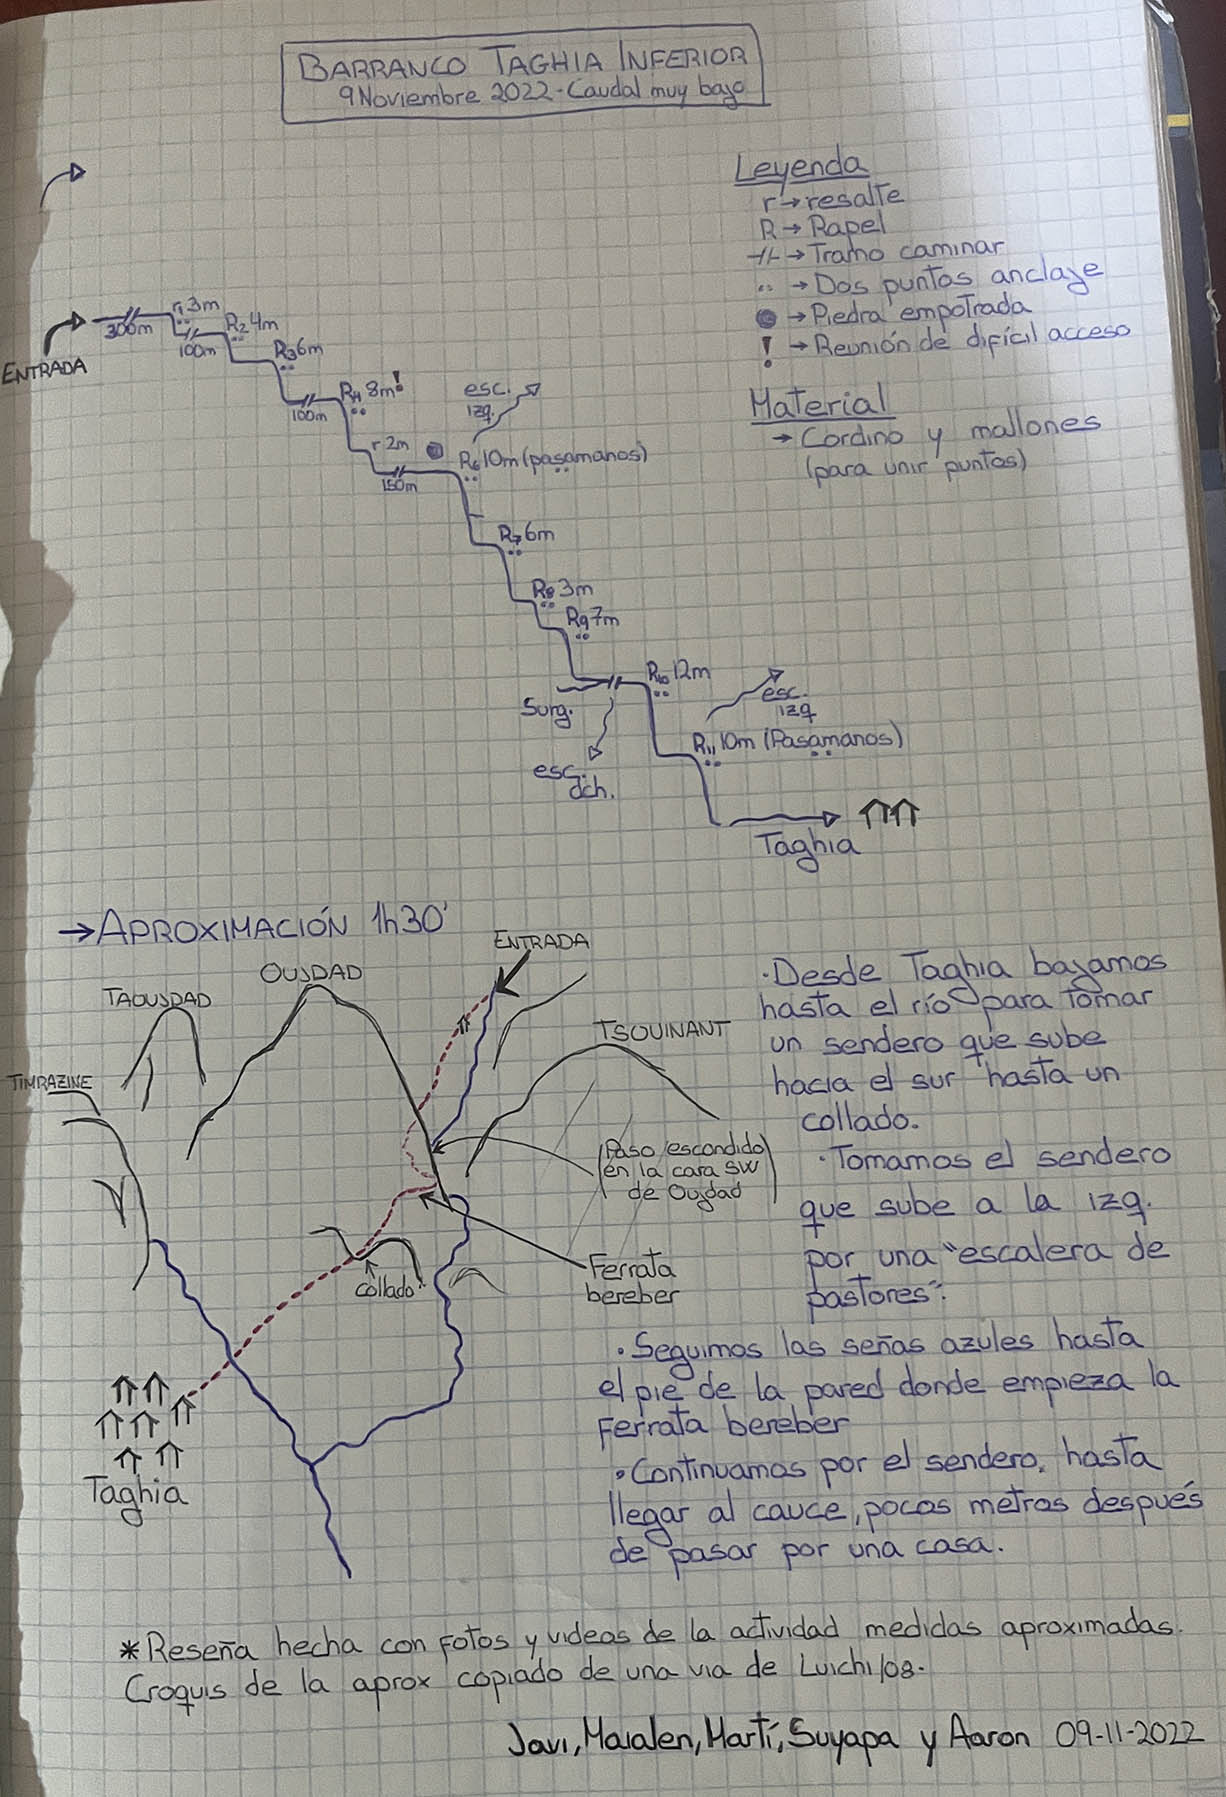 BARRANCO TAGHIA INFERIOR
9 Noviembre 2022 - Caudal muy bajo
Leyenda
r → resalte
R → Rapel
-//- → Tramo caminar
.. → Dos puntos anclaje
● → Piedra empotrada
! → Reunión de difícil acceso
Material
→ Cordino y mallones
(para unir puntos)
ENTRADA
300m
r1 3m
100m
R2 4m
R3 6m
100m
R4 8m!
r 2m
150m
esc.
izq.
R6 10m (pasamanos)
R7 6m
R8 3m
R9 7m
Surg.
esc.
dch.
R10 12m
esc.
izq
R11 10m (Pasamanos)
Taghia
→ APROXIMACIÓN 1h30'
ENTRADA
OUJDAD
TAOUJDAD
TSOUINANT
TIMRAZINE
(Paso escondido
en la cara SW
de Oujdad)
Ferrata
bereber
collado
Taghia
· Desde Taghia bajamos
hasta el río para tomar
un sendero que sube
hacia el sur hasta un
collado.
· Tomamos el sendero
que sube a la izq.
por una "escalera de
pastores".
· Seguimos las señas azules hasta
el pie de la pared donde empieza la
Ferrata bereber
· Continuamos por el sendero, hasta
llegar al cauce, pocos metros después
de pasar por una casa.
* Reseña hecha con fotos y videos de la actividad medidas aproximadas.
Croquis de la aprox copiado de una via de Luichi/08.
Javi, Maialen, Martí, Suyapa y Aaron 09-11-2022